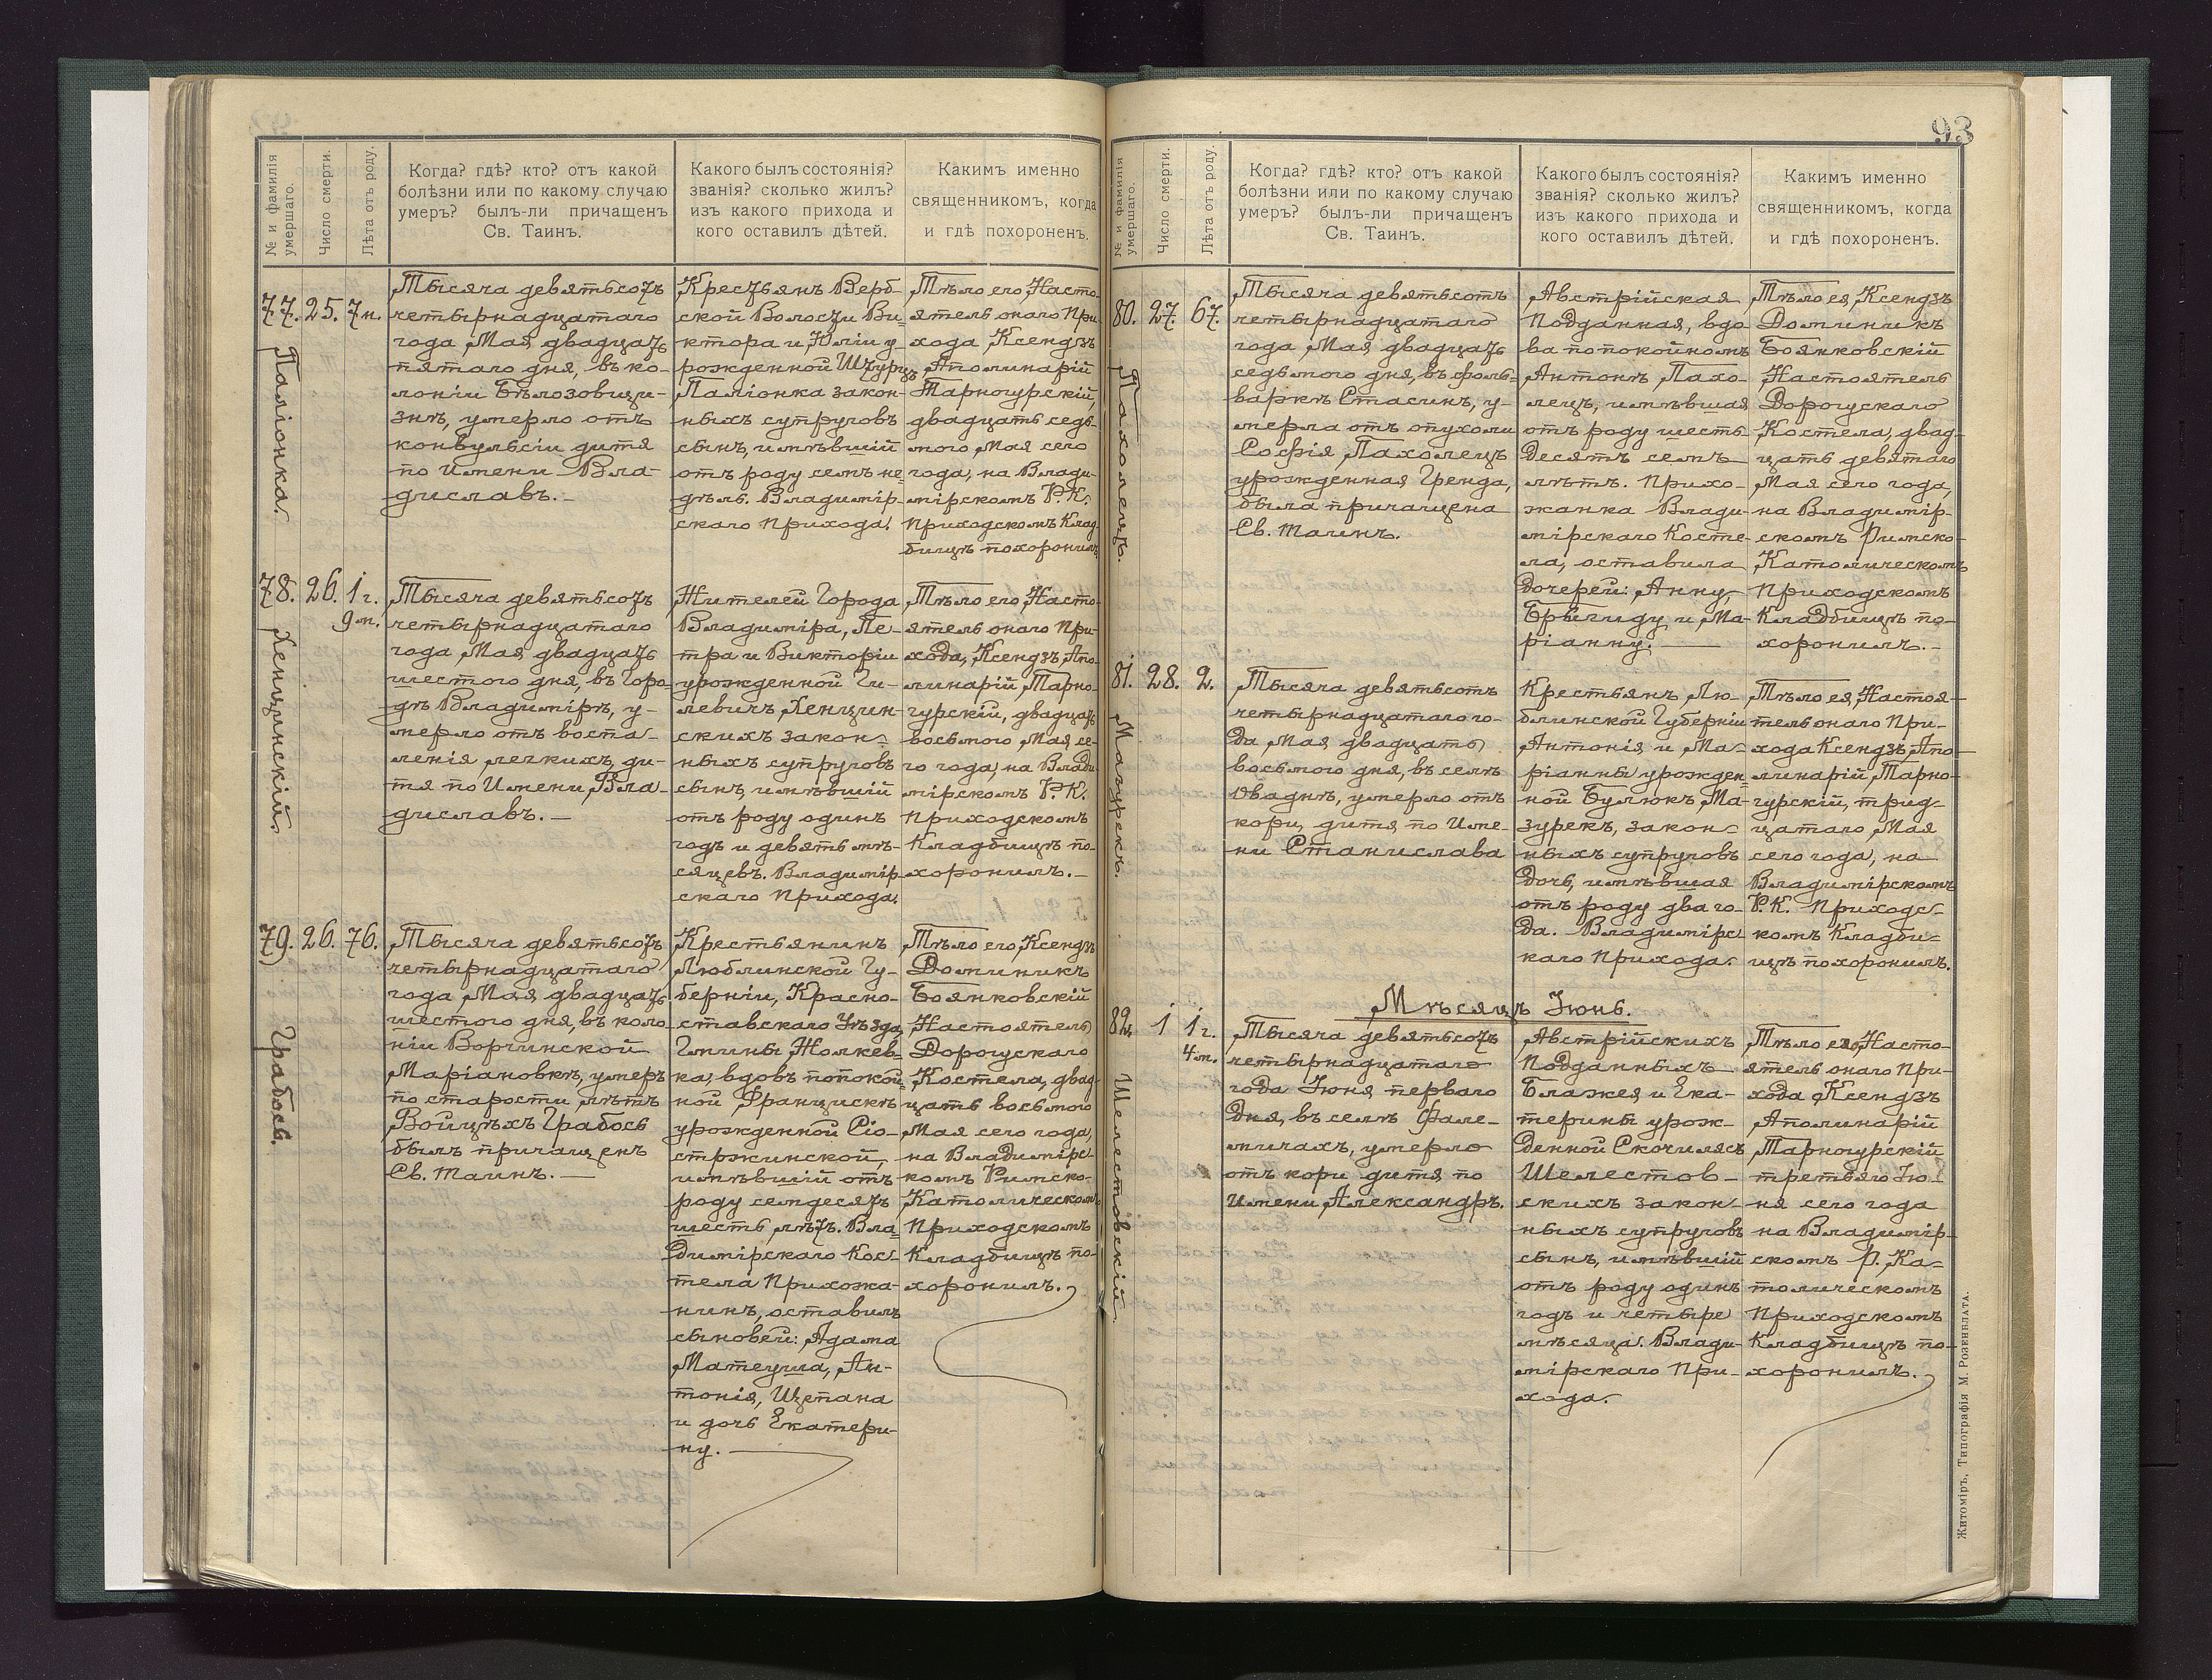 93
№ и фамилія умершаго.
Число смерти.
Лѣта отъ роду.
Когда? гдѣ? кто? отъ какой
болѣзни или по какому случаю
умеръ? былъ-ли причащенъ
Св. Таинъ.
Какого былъ состоянія?
званія? сколько жилъ?
изъ какого прихода и
кого оставилъ дѣтей.
Каким именно
священникомъ, когда
и гдѣ похороненъ.
77. 25. 7 н.
Паліонка.
Тысяча девятьсотъ
четырнадцатаго
года Мая двадцать
пятаго дня, въ ко-
лоніи Бѣлозовщи-
знѣ, умерло отъ
конвульсіи дитя
по имени Вла-
диславъ.-
Крестьянъ Верб-
ской Волости Ви-
ктора и Юліи у-
рожденной
Паліонка закон-
ныхъ супруговъ
сынъ, имѣвшій
отъ роду семь не-
дѣль. Владимір-
скаго Прихода.
Тѣло его, Насто-
ятель онаго При-
хода, Ксендзъ
Аполинарій
Тарногурскій,
двадцать седь-
мого Мая сего
года, на Влади-
мірскомъ Р. К.
Приходскомъ Клад-
бищѣ похоронилъ.
78. 26. 1 г.
9 м.
Хенцинскій.
Тысяча девятьсотъ
четырнадцатаго
года Мая двадцать
шестого дня, въ Горо-
дѣ Владимірѣ, у-
мерло отъ воспа-
ленія легкихъ, ди-
тя по Имени Вла-
диславъ.-
Жителей Города
Владиміра, Пе-
тра и Викторіи
урожденной Ги-
левичъ Хенцин-
скихъ закон-
ныхъ супруговъ
сынъ, имѣвшій
отъ роду одинъ
годъ и девять мѣ-
сяцевъ. Владимір-
скаго Прихода.
Тѣло его, Насто-
ятель онаго При-
хода, Ксендзъ Апо-
линарій Тарно-
гурскій, двадцать
восьмого Мая се-
го года, на Влади-
мірскомъ Р. К.
Приходскомъ
Кладбищѣ по-
хоронилъ.-
79. 26. 76.
Грабось.
Тысяча девятьсотъ
четырнадцатаго
года Мая двадцать
шестого дня, въ коло-
ніи Ворчинской
Маріановкѣ, умеръ
по старости лѣтъ
Войцѣхъ Грабось
былъ причащенъ
Св. Таинъ.-
Крестьянинъ
Люблинской Гу-
берніи, Красно-
ставскаго Уѣзда,
Гмины Жолкев-
ка, вдовъ по покой-
ной Францискѣ
урожденной Сіо-
стржинской,
имѣвшій отъ
роду семдесятъ
шесть лѣтъ. Вла-
димірскаго Кос-
тела Прихожа-
нинъ, оставилъ
сыновей: Адама
Матеуша, Ан-
тонія, Щепана
и дочь Екатери-
ну.-
Тѣло его, Ксендзъ
Доминикъ
Боянковскій
Настоятель
Дорогускаго
Костела, двад-
цать восьмого
Мая сего года,
на Владимірс-
комъ Римско-
Католическомъ
Приходскомъ
Кладбищѣ по-
хоронилъ.
№ и фамилія умершаго.
Число смерти.
Лѣта отъ роду.
Когда? гдѣ? кто? отъ какой
болѣзни или по какому случаю
умеръ? былъ-ли причащенъ
Св. Таинъ.
Какого былъ состоянія?
званія? сколько жилъ?
изъ какого прихода и
кого оставилъ дѣтей.
Каким именно
священникомъ, когда
и гдѣ похороненъ.
80. 27. 67.
Пахолецъ.
Тысяча девятьсотъ
четырнадцатаго
года Мая двадцать
седьмого дня, въ фоль-
варкѣ Стасинъ, у-
мерла отъ опухоли
Софія Пахолецъ
урожденная Гренда,
была причащена
Св. Таинъ.
Австрійская
Подданная, вдо-
ва по покойномъ
Антонѣ Пахо-
лецъ, имѣвшая
отъ роду шесть-
десятъ семь
лѣтъ. Прихо-
жанка Влади-
мірскаго Косте-
ла, оставила
дочерей: Анну,
Брыгиду и Ма-
ріанну.
Тѣло ея, Ксендзъ
Доминикъ
Боянковскій
Настоятель
Дорогускаго
Костела, двад-
цать девятаго
Мая сего года,
на Владимір-
скомъ Римско-
Католическомъ
Приходскомъ
Кладбищѣ по-
хоронилъ.-
81. 28. 2.
Мазурекъ.
Тысяча девятьсотъ
четырнадцатаго го-
да Мая двадцать
восьмого дня, въ селѣ
Оваднѣ, умерло отъ
кори, дитя по Име-
ни Станислава
Крестьянъ Лю-
блинской Губерніи
Антонія и Ма-
ріанны урожден-
ной Булюкъ, Ма-
зурекъ, закон-
ныхъ супруговъ
дочь, имѣвшая
отъ роду два го-
да. Владимірс-
каго Прихода.
Тѣло ея, Настоя-
тель онаго При-
хода Ксендзъ Апо-
линарій Тарно-
гурскій, трид-
цатаго Мая
сего года, на
Владимірскомъ
Р. К. Приходс-
комъ Кладби-
щѣ похоронилъ.
Мѣсяцъ Іюнь.
82. 1 1 г.
4 м.
Шелестовскій.
Тысяча девятьсотъ
четырнадцатаго
года Іюня перваго
дня, въ селѣ Фале-
мичахъ, умерло
отъ кори дитя по
Имени Александръ.
Австрійскихъ
Подданныхъ
Блажея и Ека-
терины урож-
денной Скочилясъ
Шелестов-
скихъ закон-
ныхъ супруговъ
сынъ, имѣвшій
отъ роду одинъ
годъ и четыре
мѣсяца. Влади-
мірскаго При-
хода.
Тѣло его, Насто-
ятель онаго При-
хода Ксендзъ
Аполинарій
Тарногурскій
третьяго Ію-
ня сего года
на Владимір-
скомъ Р. Ка-
толическомъ
Приходскомъ
Кладбищѣ по-
хоронилъ.
Житоміръ, Типографія М. Розенблата.